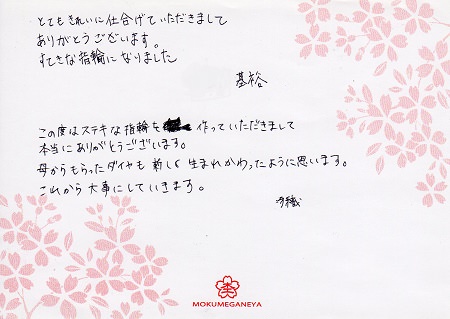 とてもきれいに仕上げていただきまして
ありがとうございます。
すてきな指輪になりました
基裕
この度はステキな指輪を 作っていただきまして
本当にありがとうございます。
母からもらったダイヤも新しく生まれかわったように思います。
これから大事にしていきます。
MOKUMEGANEYA